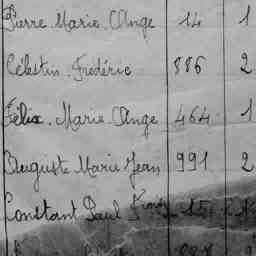 Pierre Marie Ange 14 1
Célestin Frédéric 886 2
Félix Marie Ange 464 1
Auguste Marie Jean 991 2
Constant Paul 15 1